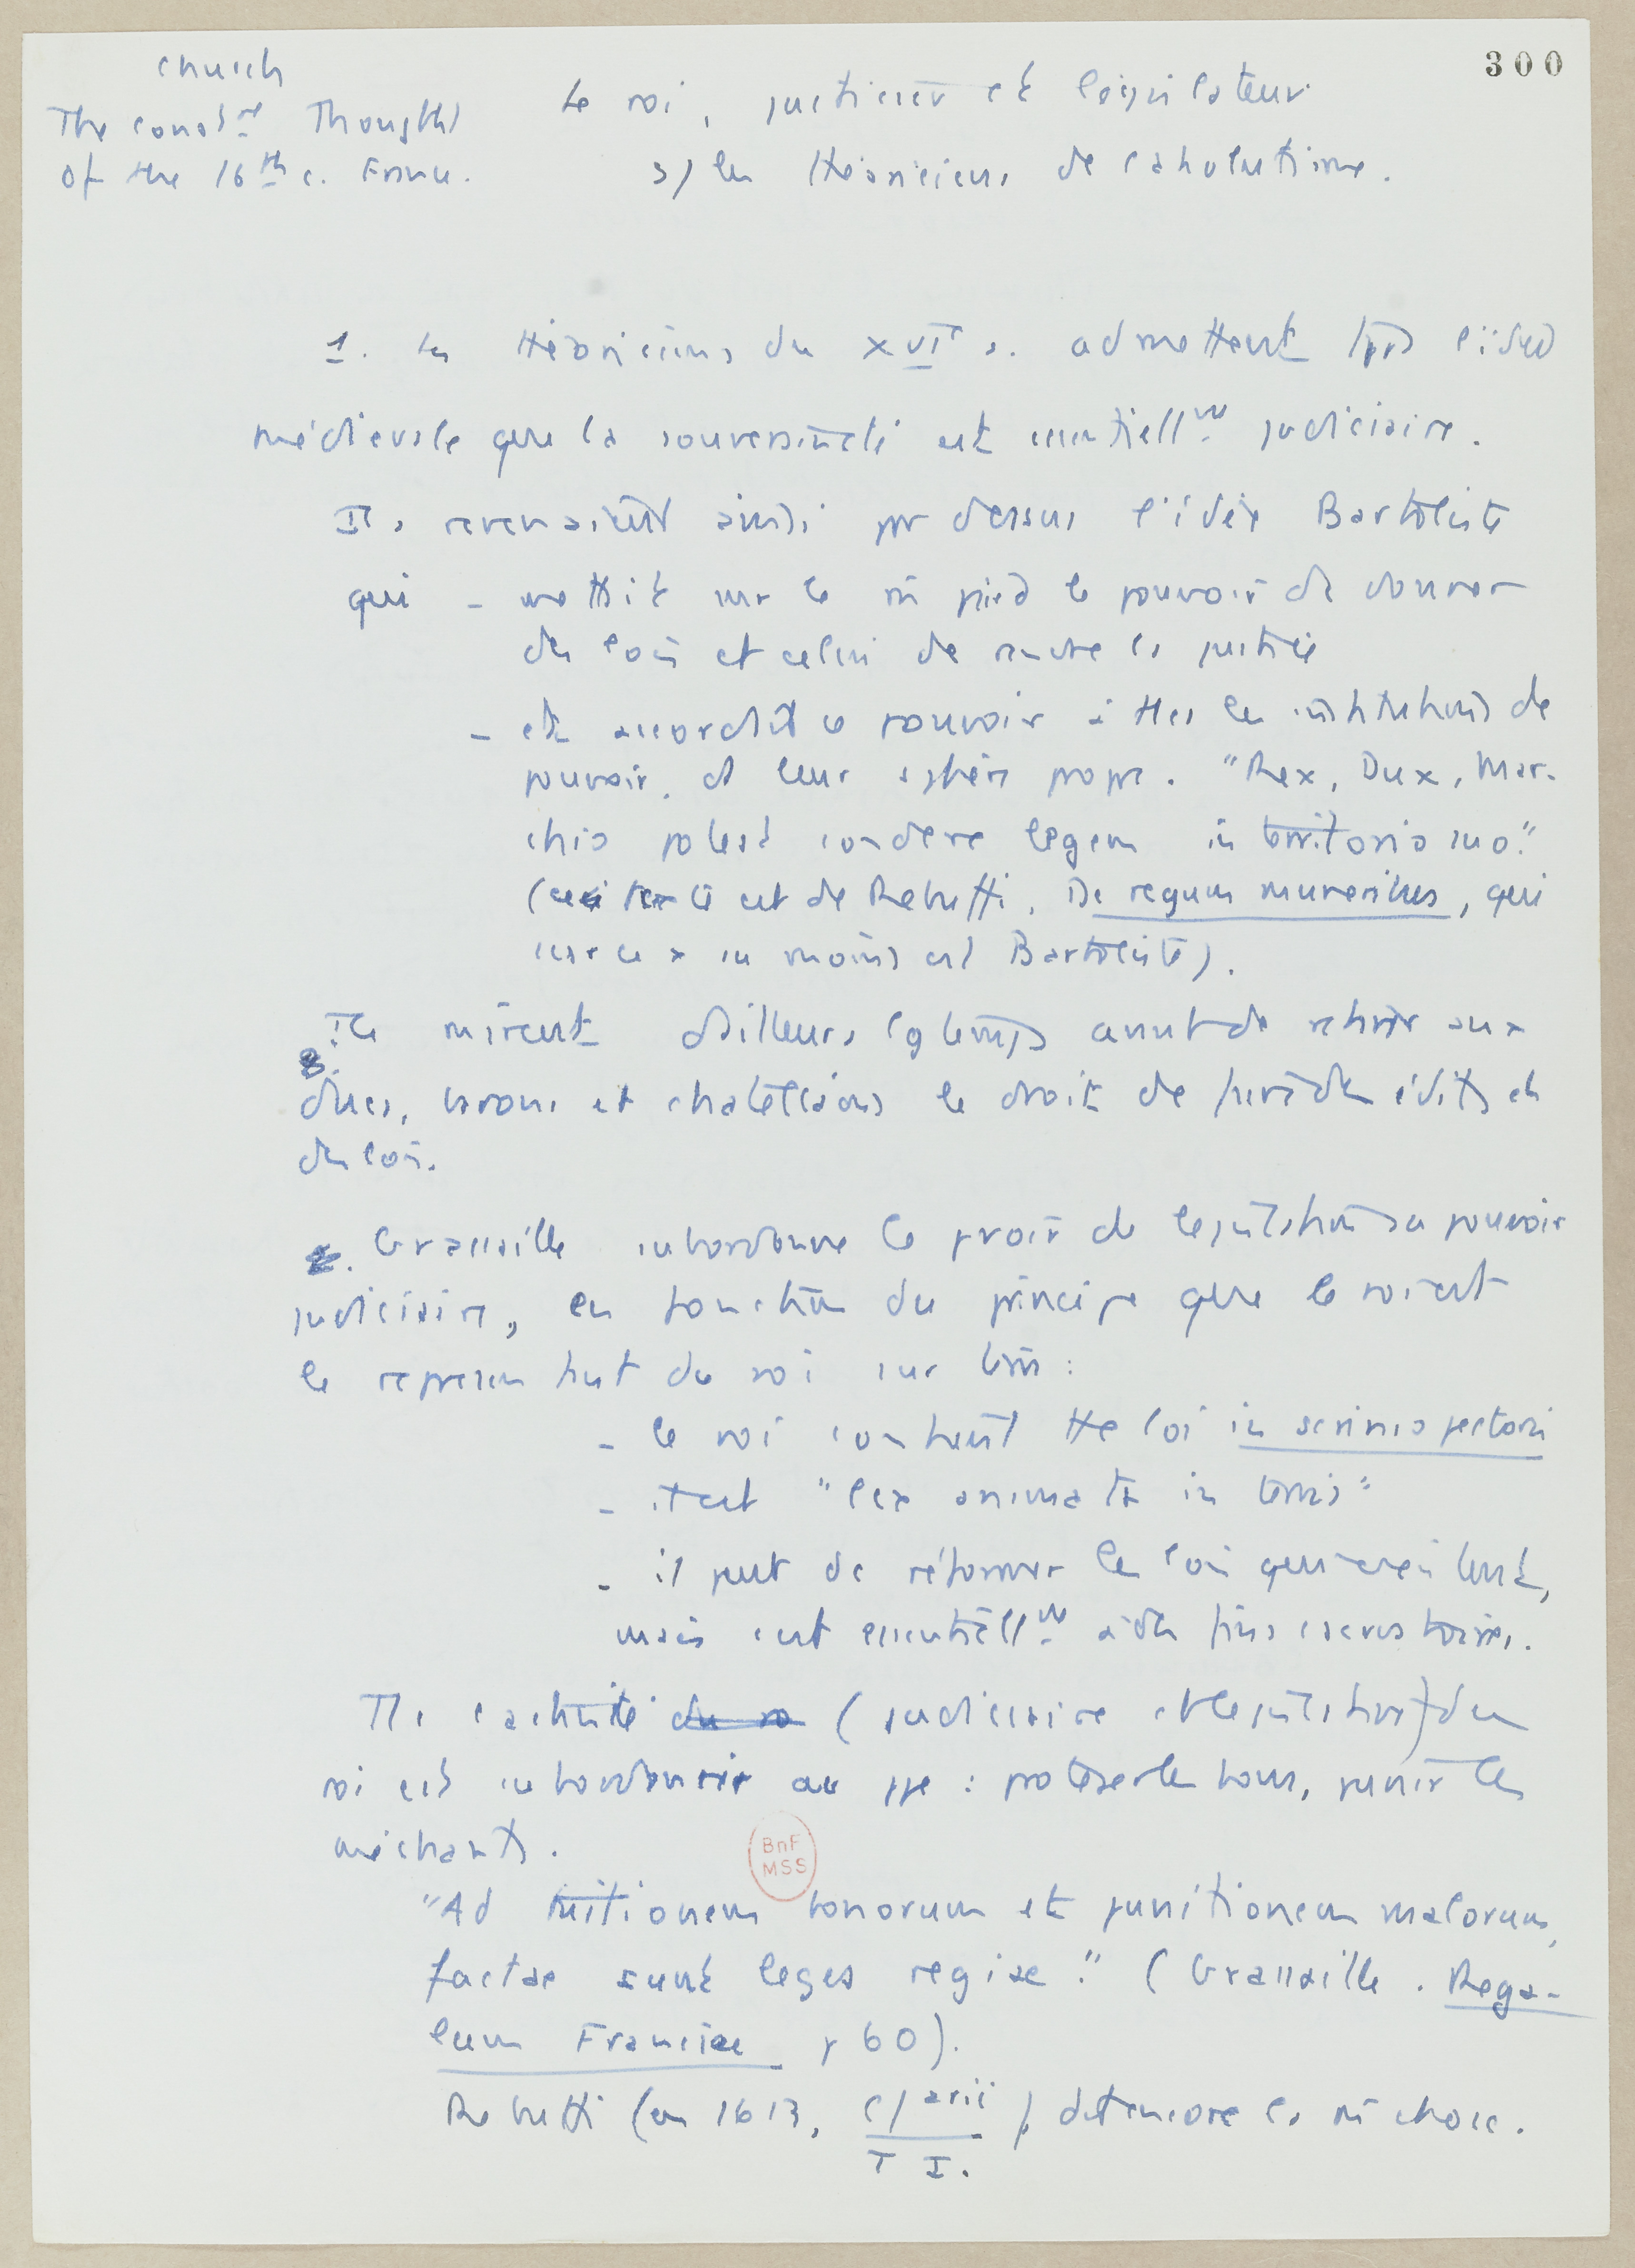 300
Church
The const.re Thought
of the 16th c. France.
Le roi, justicier et législateur
3) les théoriciens de l'absolutisme.
1. Les théoriciens du XVIe s. admettent tjrs l'idée
médiévale que la souveraineté est essentiellmt judiciaire.
Ils revenaient ainsi par dessus l'idée Bartoliste
qui - mettait sur le m pied le pouvoir de donner
des lois et celui de rendre la justice
- et accordait ce pouvoir à ttes les institutions de
pouvoir, ds leur sphère propre. "Rex, Dux, Mar-
chio potest condere legem in territorio suo."
(ce texte est de Rebuffi, De regum muneribus, qui
au moins est Bartoliste).
Ils mirent d'ailleurs lgtemps avant de retirer aux
ducs, barons et chatellains le droit de faire des édits et
des lois.
2. Grassaille subordonne le pvoir de législation au pouvoir
judiciaire, en fonction du principe que le roi est
le représentant du roi sur terre :
- le roi contient tte loi in scrinio pectoris
- il est "lex animata in terris"
- il peut de réformer les lois qui existent,
mais c'est essentiellmt à des fins conservatoires.
Tte l'activité du ro (judiciaire et législative) du
roi est subordonnée au ppe : protéger les bons, punir les
méchants.
BnF
MSS
"Ad tuitionem bonorum et punitionem malorum,
factae sunt leges regiae." (Grassaille. Rega-
lium Franciae p 60).
Rebuffi (en 1613, T I.) dit encore la m chose.